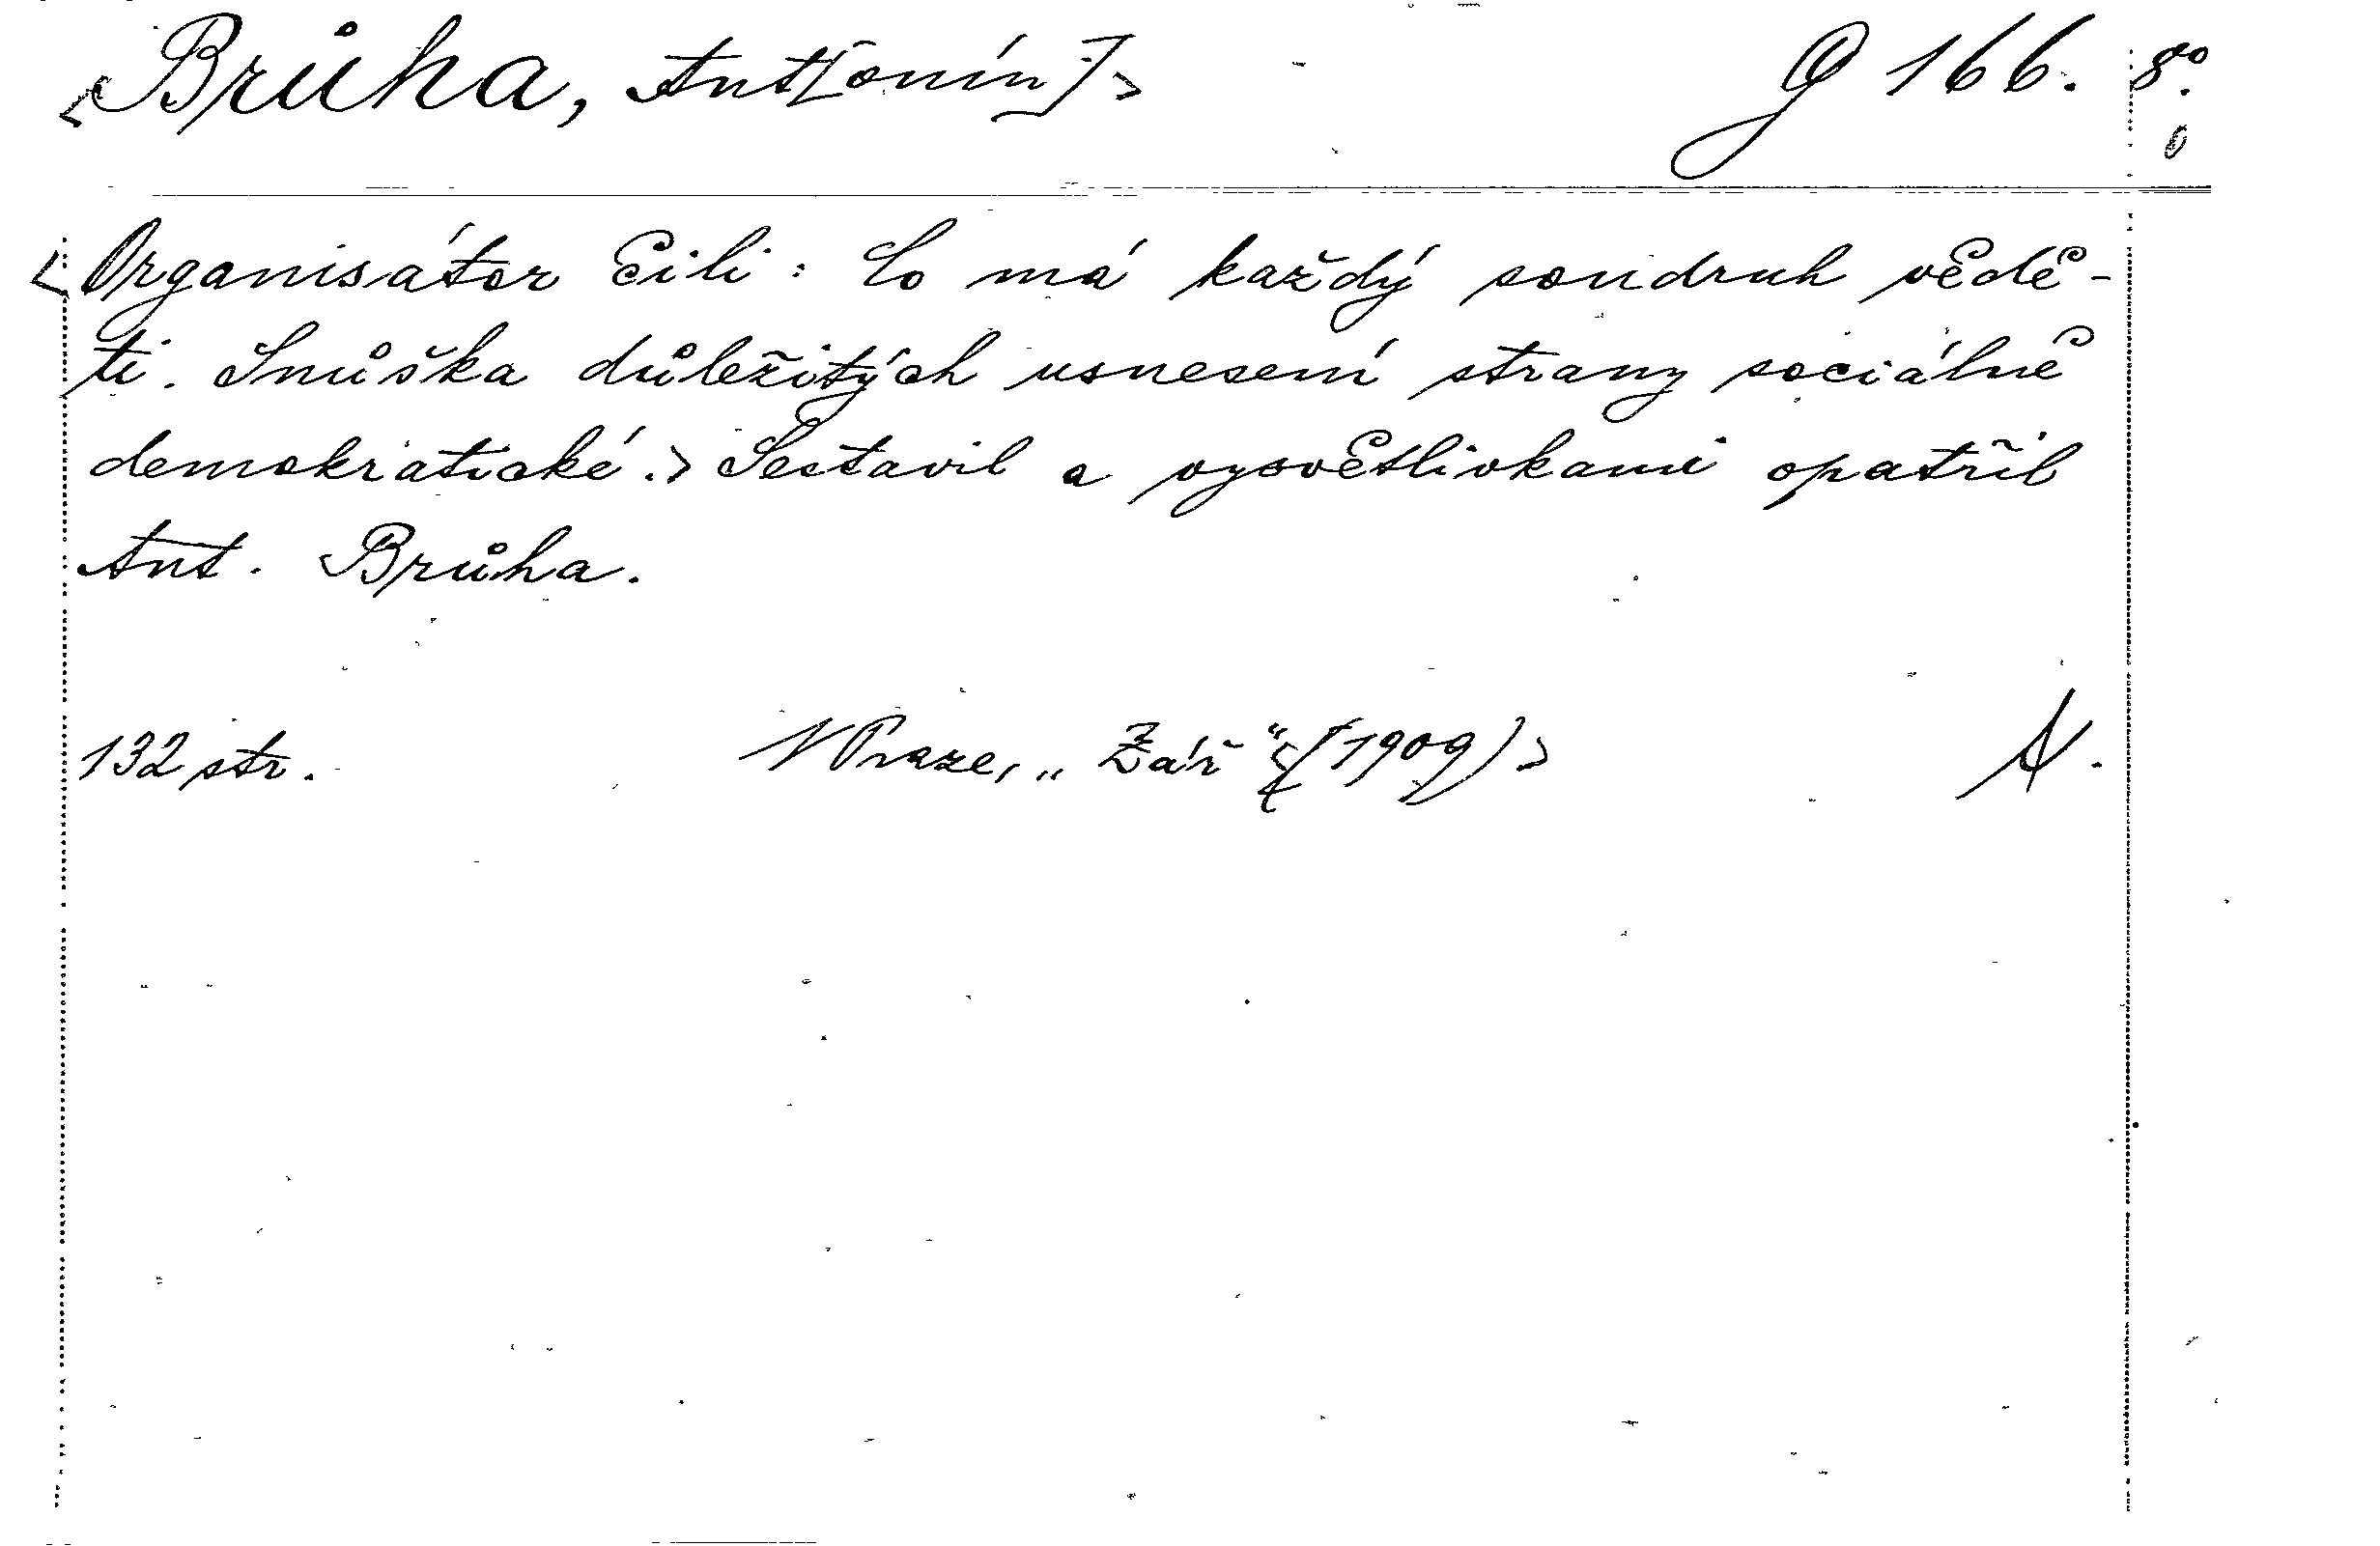 <Brůha, Ant[onín]> Q 166. 8º.
<Organisátor čili: Co má každý soudruh vědě-
ti. Snůška důležitých usnesení strany sociálně
demokratické.> Sestavil a vysvětlivkami opatřil
Ant. Brůha.
132 str. V Praze, „Zář“ <(1909)> A.